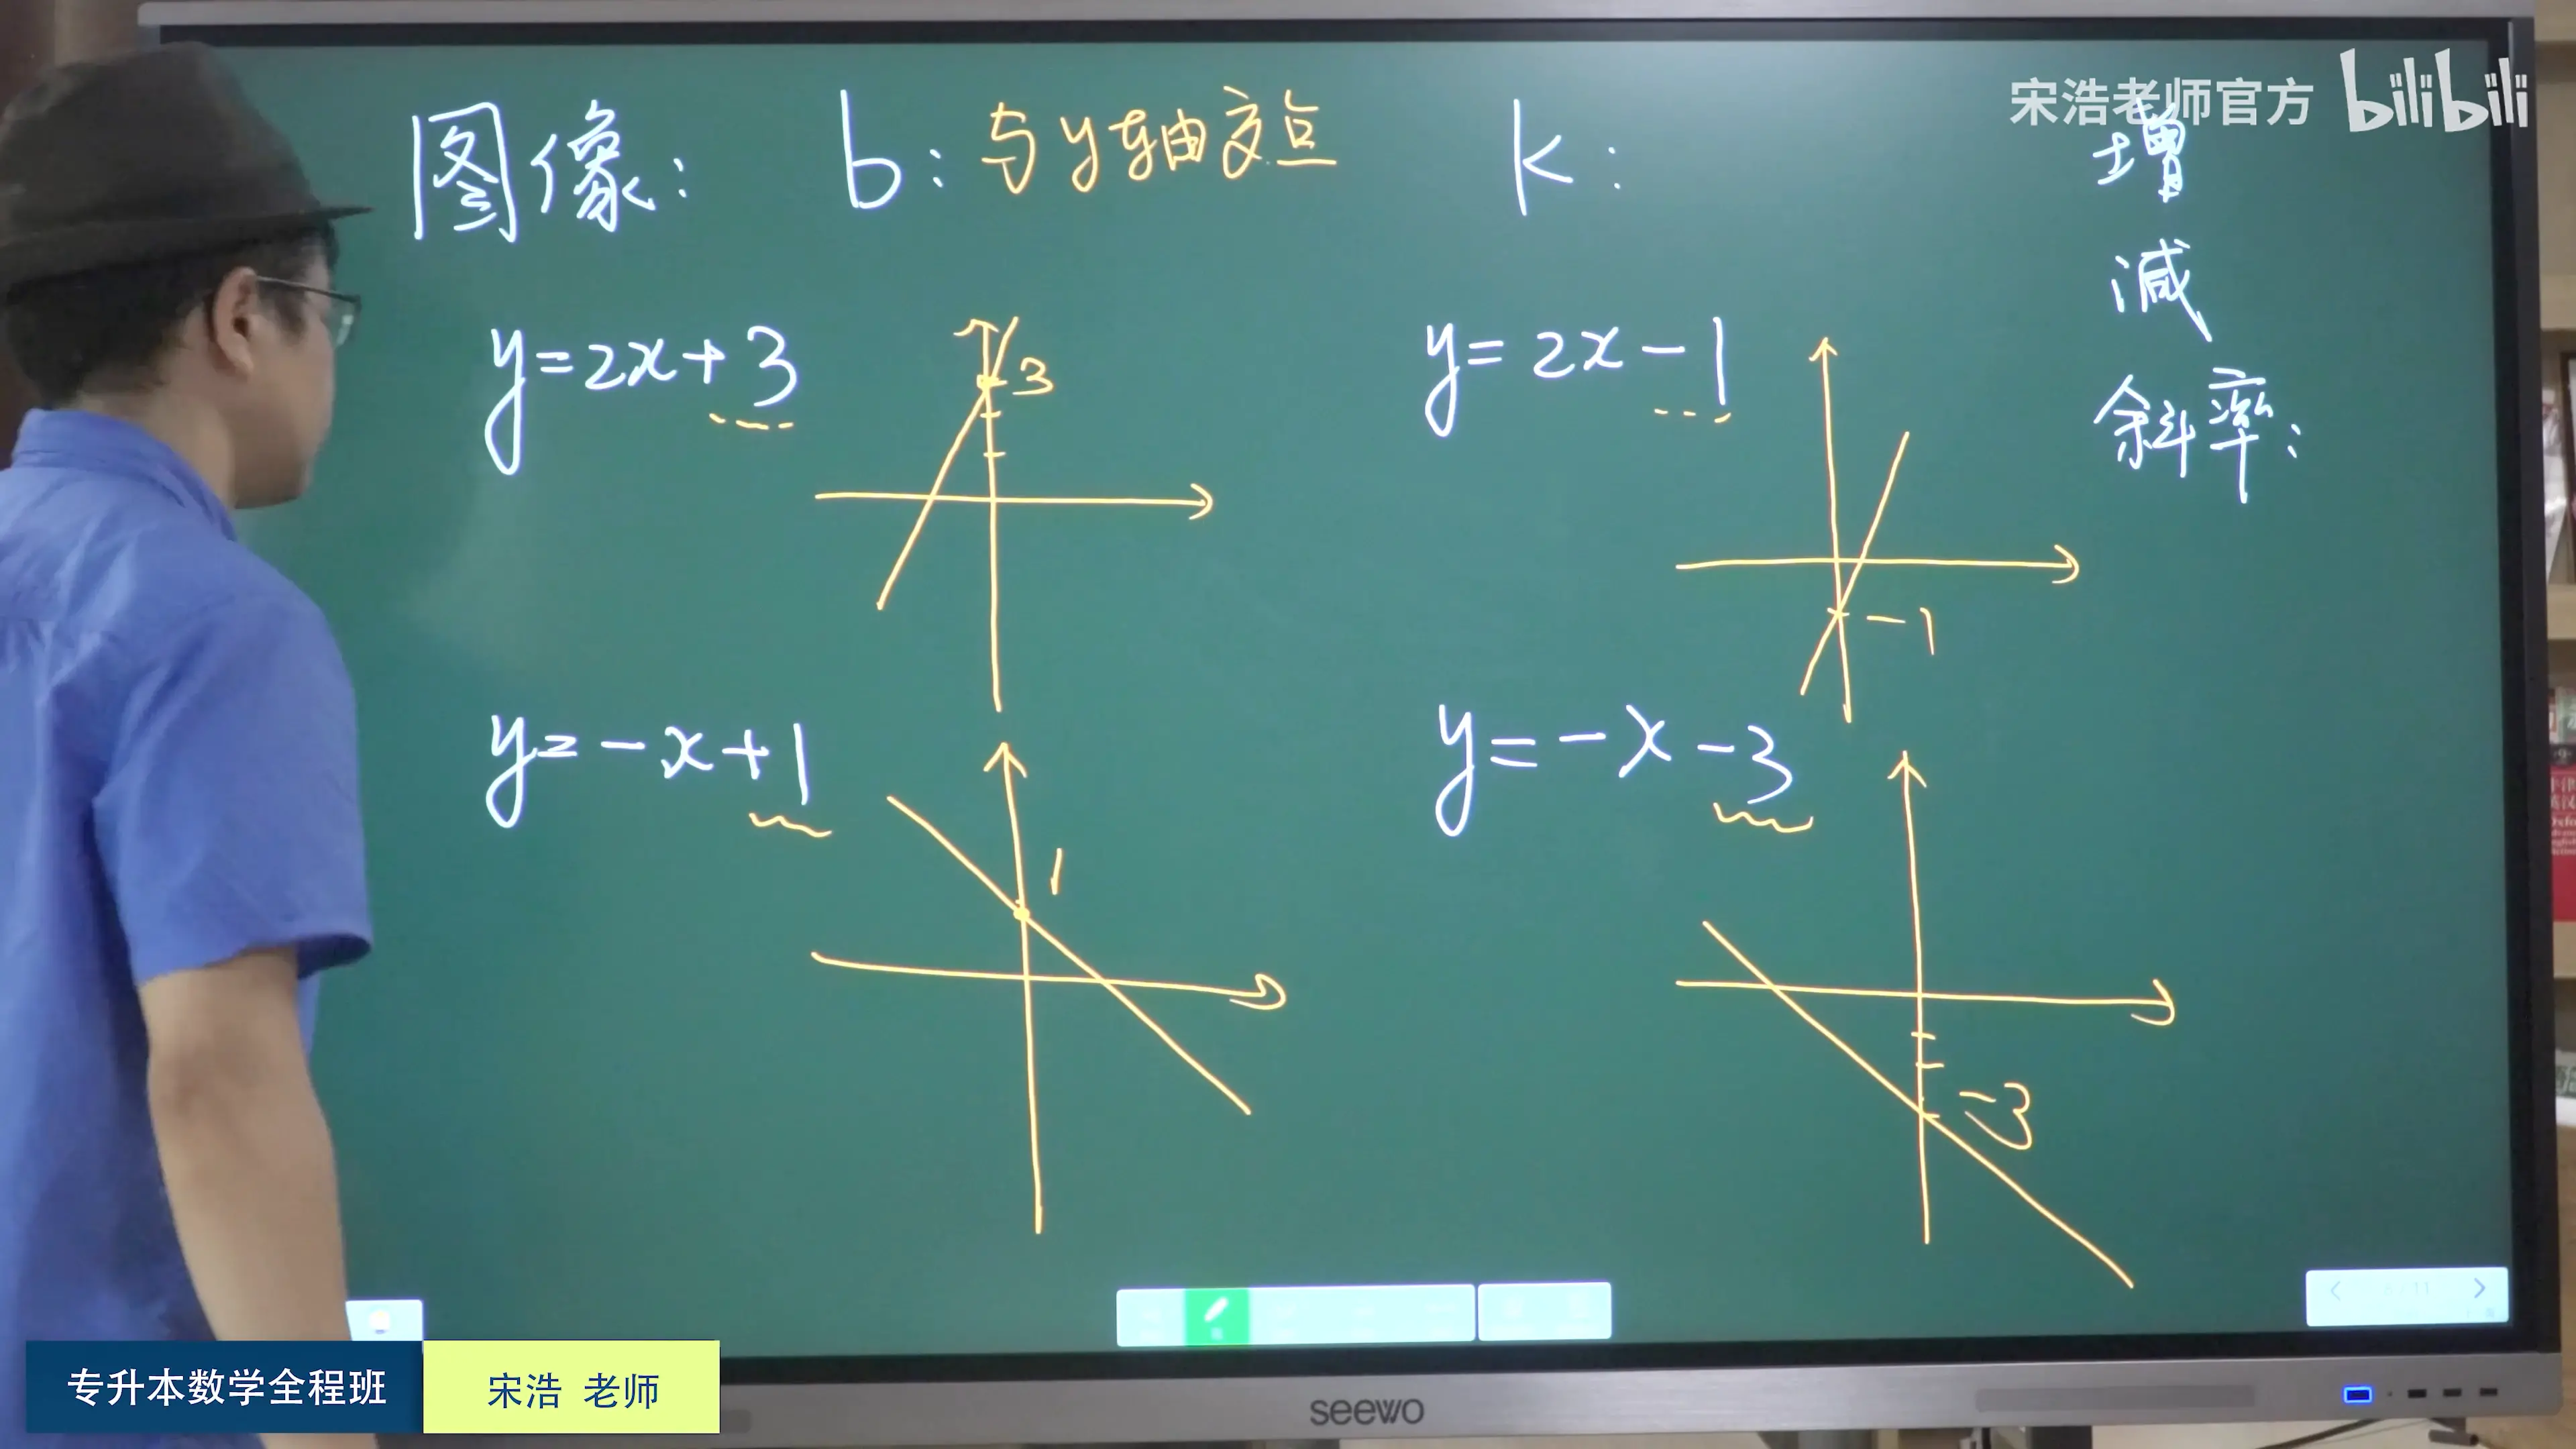 宋浩老师官方 bilibili
图像： b：与y轴交点 k： 增
减
斜率：
y=2x+3
3
y=2x-1
-1
y=-x+1
1
y=-x-3
-3
专升本数学全程班 宋浩 老师
seewo